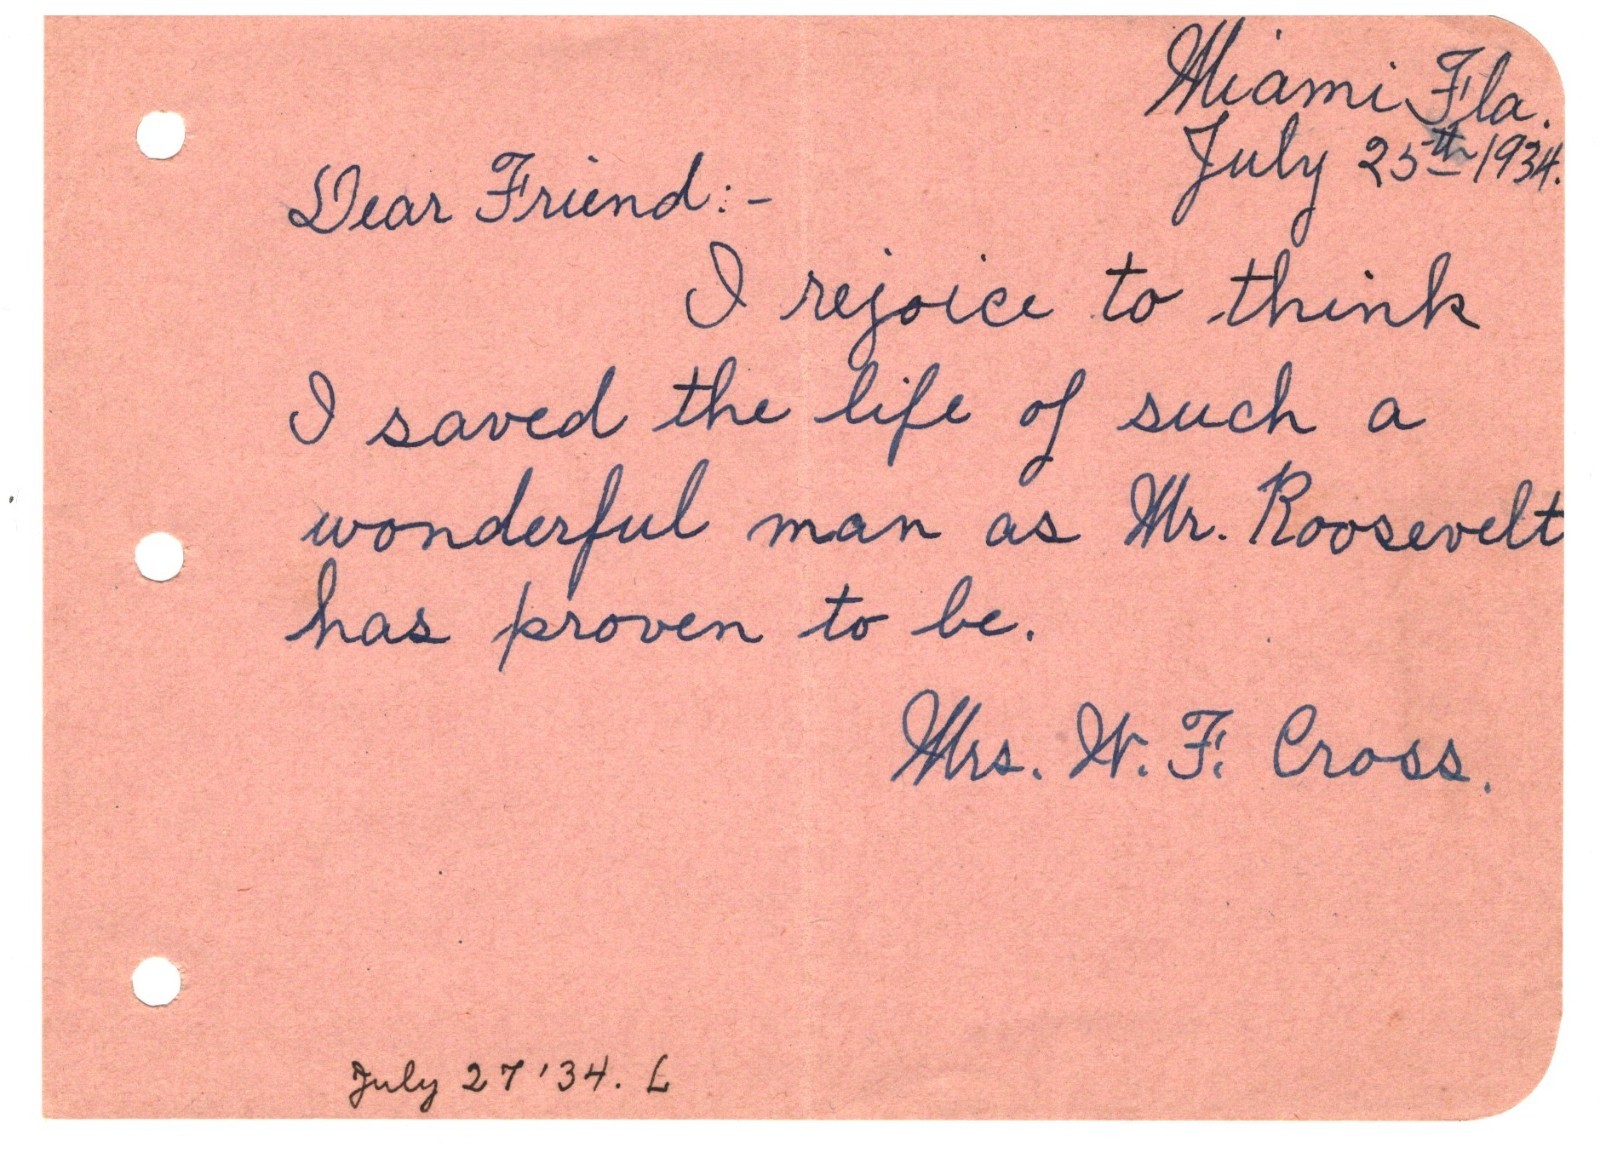 Miami Fla.
July 25th 1934.
Dear Friend:-
I rejoice to think
I saved the life of such a
wonderful man as Mr. Roosevelt
has proven to be.
Mrs. W. F. Cross.
July 27 '34. L